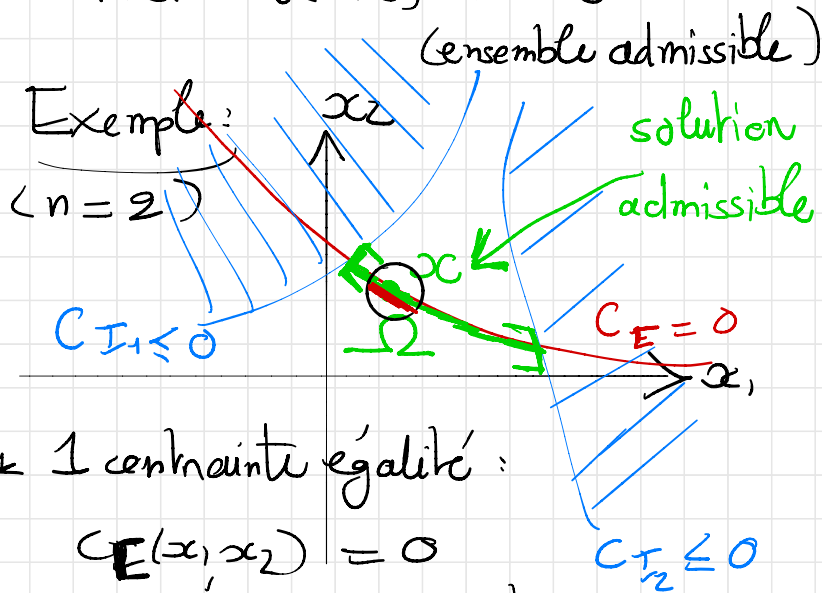 (ensemble admissible)
Exemple:
x2
solution
(n=2)
admissible
x
C I1 ≤ 0
Ω
C E = 0
x1
1 contrainte égalité :
CE(x1,x2) = 0
C I2 ≤ 0